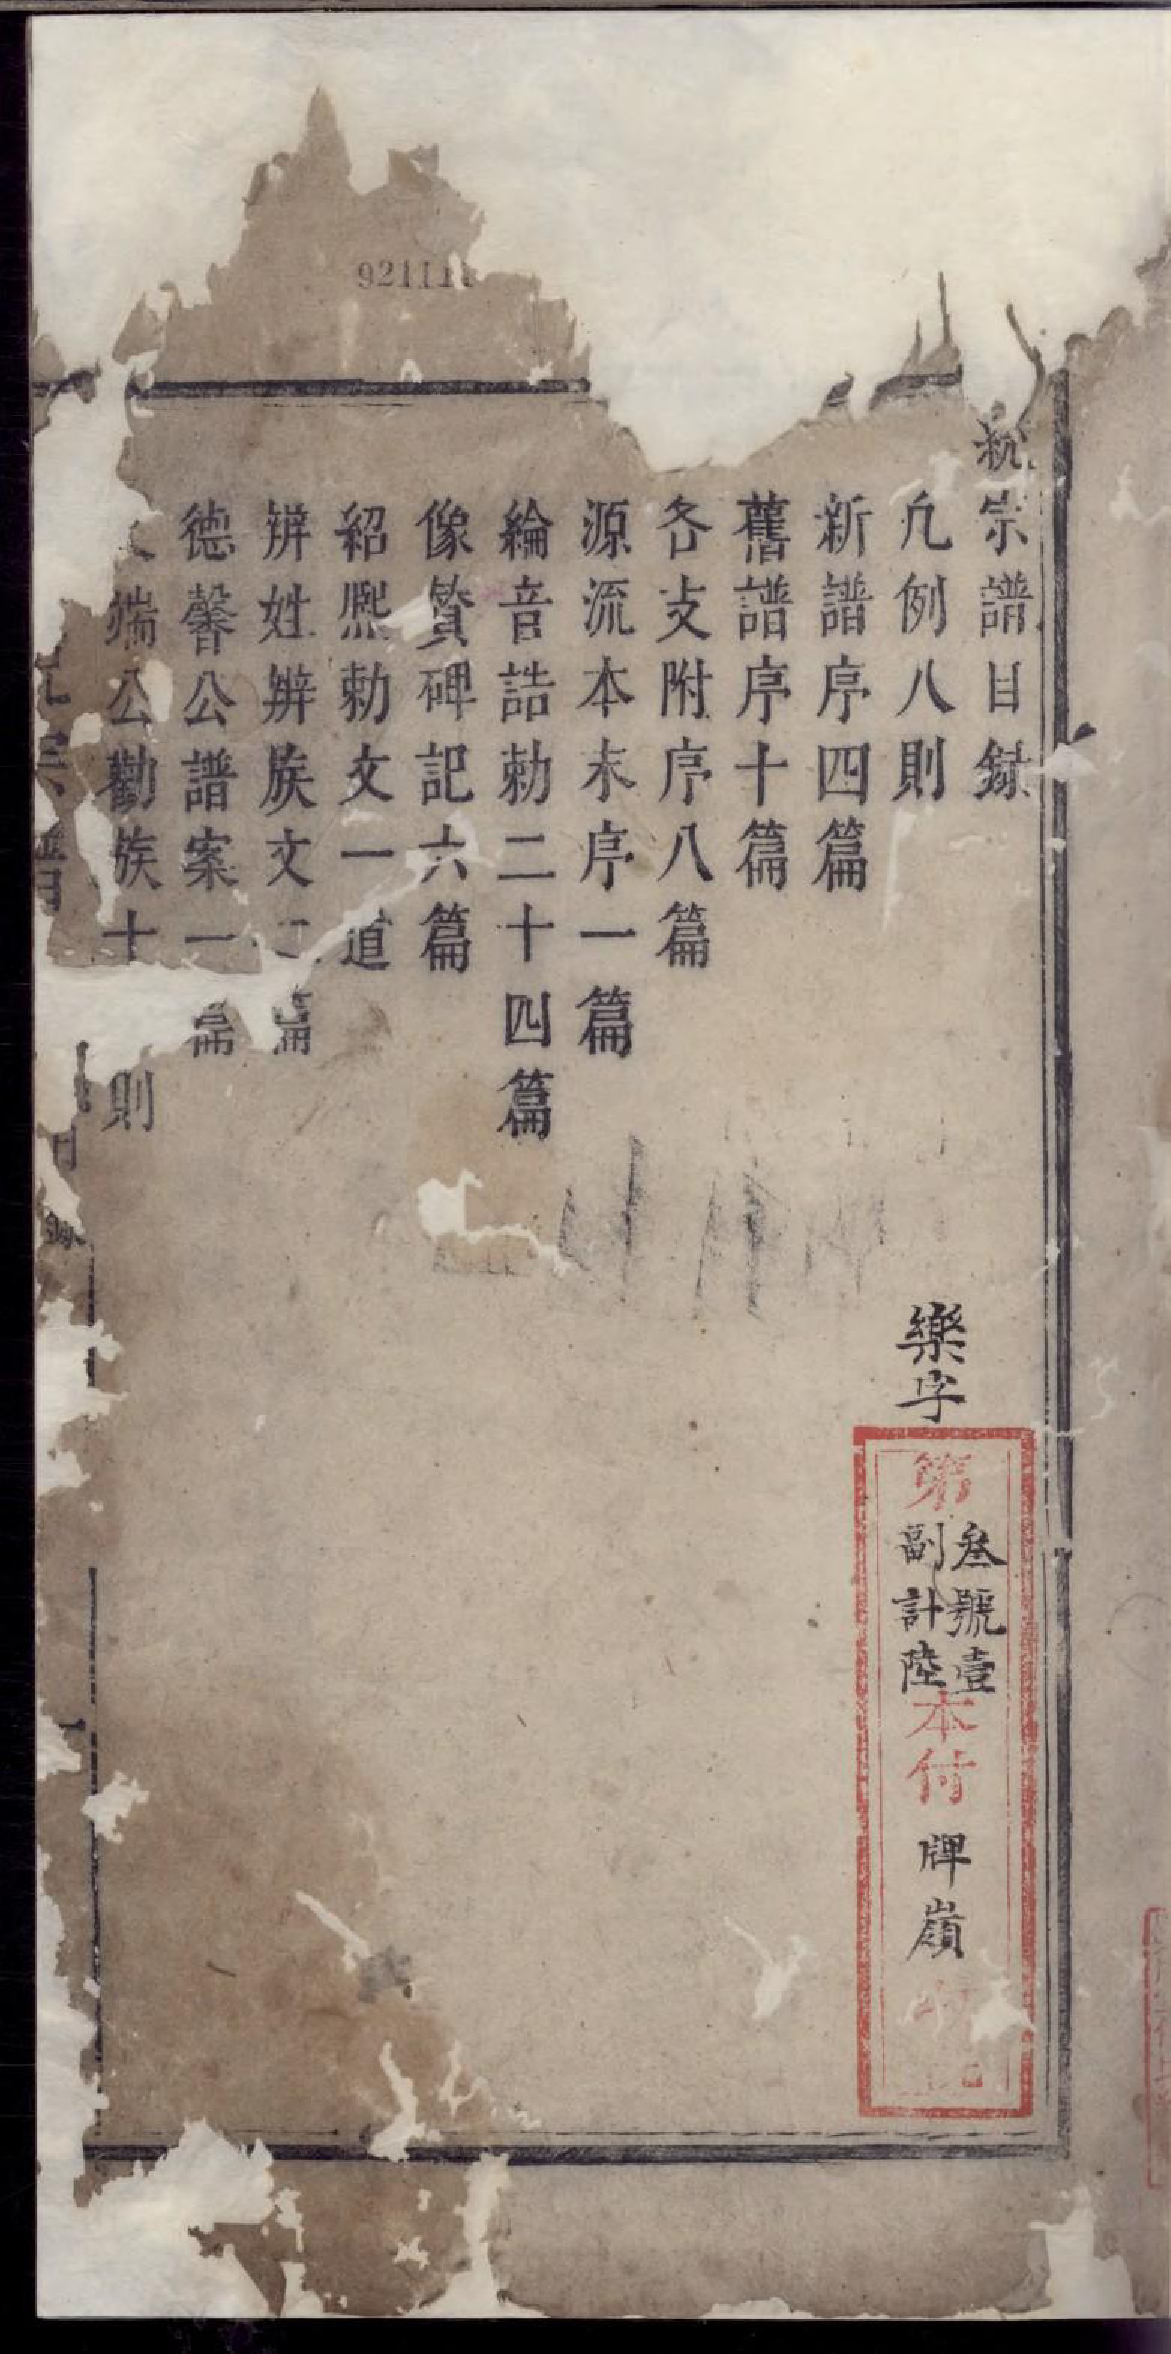 統宗譜目錄
凡例八則
新譜序四篇
舊譜序十篇
各支附序八篇
源流本末序一篇
綸音誥勅二十四篇
像贊碑記六篇
紹熙勅文一道
辨姓辨族文二篇
德馨公譜案一篇
端公勸族十則
樂字
第
叁號壹
副計陸
本付
牌嶺
92111
宗譜
目錄
一